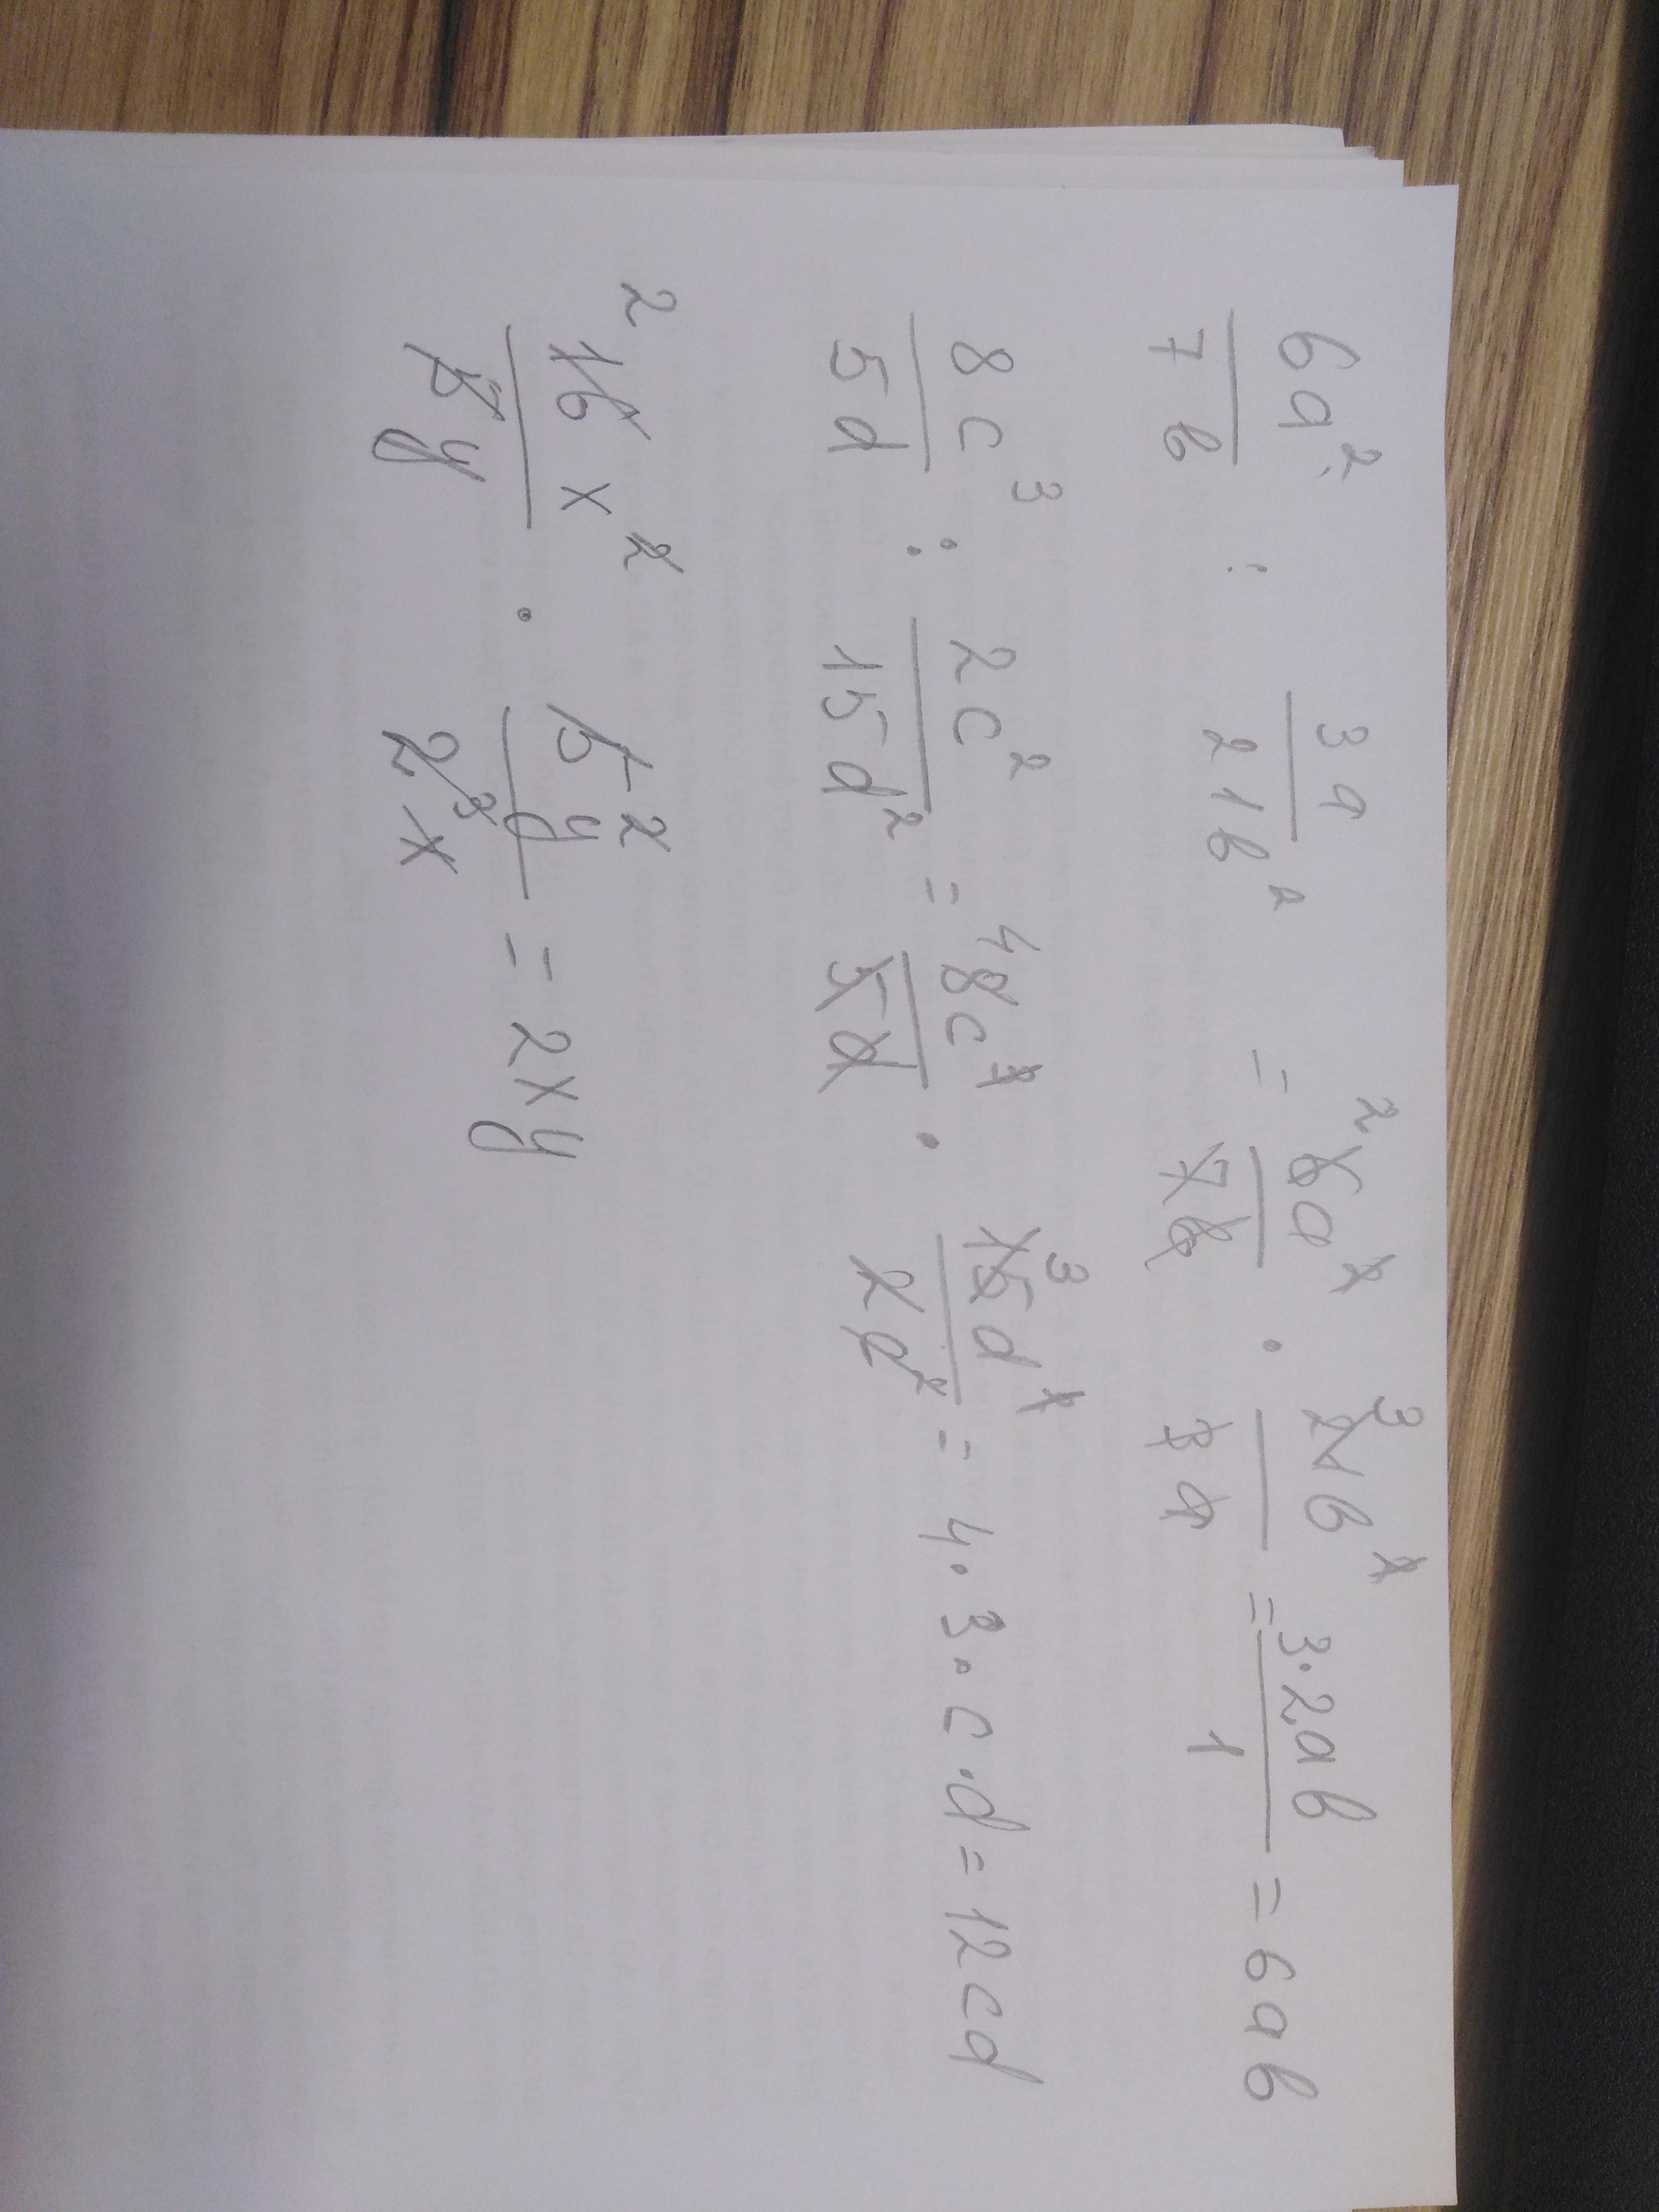 6a²/7b : 3a/21b² = ²6a²/7b · ³21b²/3a = 3·2ab/1 = 6ab
8c³/5d : 2c²/15d² = ⁴8c³/5d · 15³d²/2c² = 4·3·c·d = 12cd
²16x²/y · y²/x = 2xy